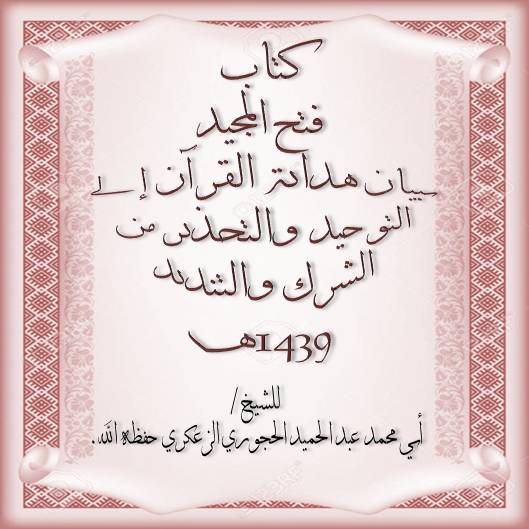 كتاب
فتح المجيد
ببيان هداية القرآن إلى
التوحيد والتحذير من
الشرك والتنديد
1439هـ
للشيخ/
أبي محمد عبد الحميد الحجوري الزعكري حفظه الله.